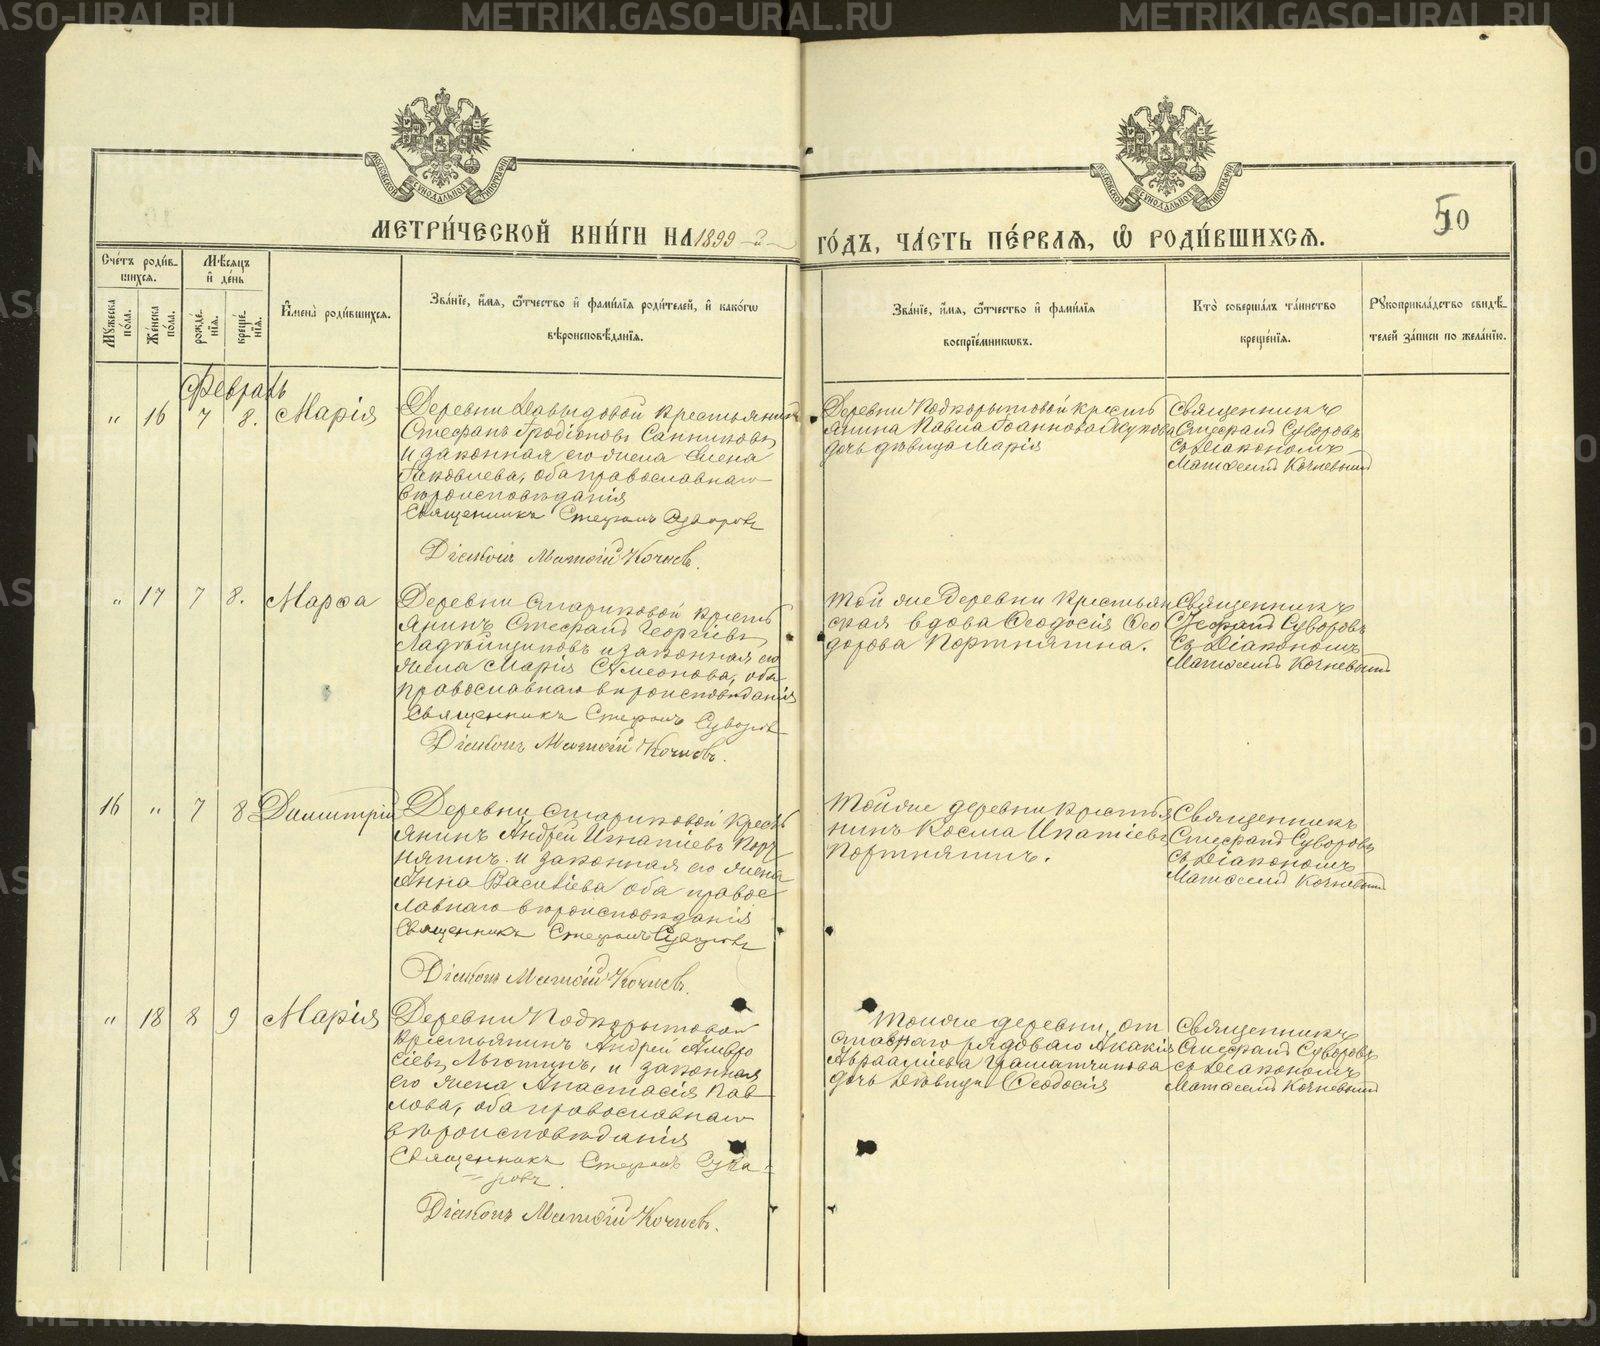 METRIKI.GASO-URAL.RU
МЕТРИ́ЧЕСКОЙ КНИ́ГИ НА 1899-й ГО́ДЪ, ЧА́СТЬ ПЕ́РВАЯ, Ѿ РОДИ́ВШИХСѦ.
50
Сче́тъ роди́в-
шихся.
Мѣ́сяцъ
и҆ де́нь
Мꙋ́жеска
по́ла.
Же́нска
по́ла.
рожде́-
нїя.
креще́-
нїя.
И҆мена̀ роди́вшихся.
Зва́нїе, и҆́мя, ѻ҆́тчество и҆ фами́лїя роди́телей, и҆ како́гѡ
вѣроисповѣ́данїя.
Зва́нїе, и҆́мя, ѻ҆́тчество и҆ фами́лїя
воспрїе́мникѡвъ.
Кто̀ соверша́лъ та́инство
креще́нїя.
Рꙋкоприкла́дство свидѣ́-
телей за́писи по жела́нїю.
Февраль
" 16 7 8. Марія
Деревни Давыдовой крестьянинъ
Стефанъ Иродіоновъ Санниковъ
и законная его жена Елена
Іаковлева, оба православнаго
вѣроисповѣданія
Священникъ Стефанъ Суворовъ
Діаконъ Матѳій Кочневъ.
Деревни Подкорытовой кресть
янина Павла Іоаннова Якунова
дочь дѣвица Марія
Священникъ
Стефанъ Суворовъ
съ Діакономъ
Матѳемъ Кочневымъ
" 17 7 8. Марѳа
Деревни Стариковой кресть
янинъ Стефанъ Георгіевъ
Ладѣйщиковъ и законная его
жена Марія Симеонова, оба
православнаго вѣроисповѣданія
Священникъ Стефанъ Суворовъ
Діаконъ Матѳій Кочневъ.
Той же деревни крестьян
ская вдова Ѳеодосія Ѳео
дорова Портнягина.
Священникъ
Стефанъ Суворовъ
Съ Діакономъ
Матѳемъ Кочневымъ
16 " 7 8 Димитрій
Деревни Стариковой кресть
янинъ Андрей Игнатіевъ Порт
нягинъ и законная его жена
Анна Василіева оба правос
лавнаго вѣроисповѣданія
Священникъ Стефанъ Суворовъ
Діаконъ Матѳій Кочневъ.
Той же деревни крестья
нинъ Косма Ипатіевъ
Портнягинъ.
Священникъ
Стефанъ Суворовъ
съ Діакономъ
Матѳемъ Кочневымъ
" 18 8 9 Марія
Деревни Подкорытовой
крестьянинъ Андрей Амвро
сіевъ Льготинъ, и законная
его жена Анастасія Пав
лова, оба православнаго
вѣроисповѣданія
Священникъ Стефанъ Суво-
=ровъ.
Діаконъ Матѳій Кочневъ.
Той же деревни, от
ставнаго рядоваго Акакія
Авраамиева Граматчикова
дочь дѣвица Ѳеодосія
Священникъ
Стефанъ Суворовъ
съ Діакономъ
Матѳемъ Кочневымъ